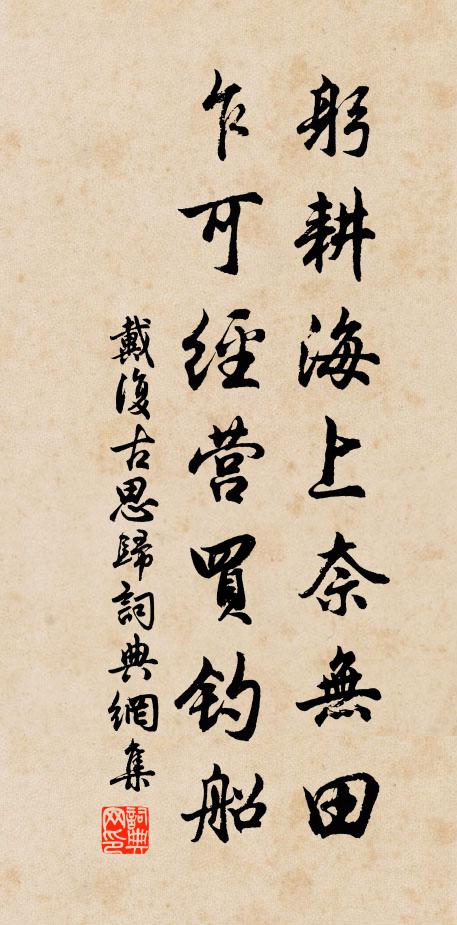 躬耕海上奈無田
乍可經营買钓船
戴復古思歸詞典網集
詞典
网印